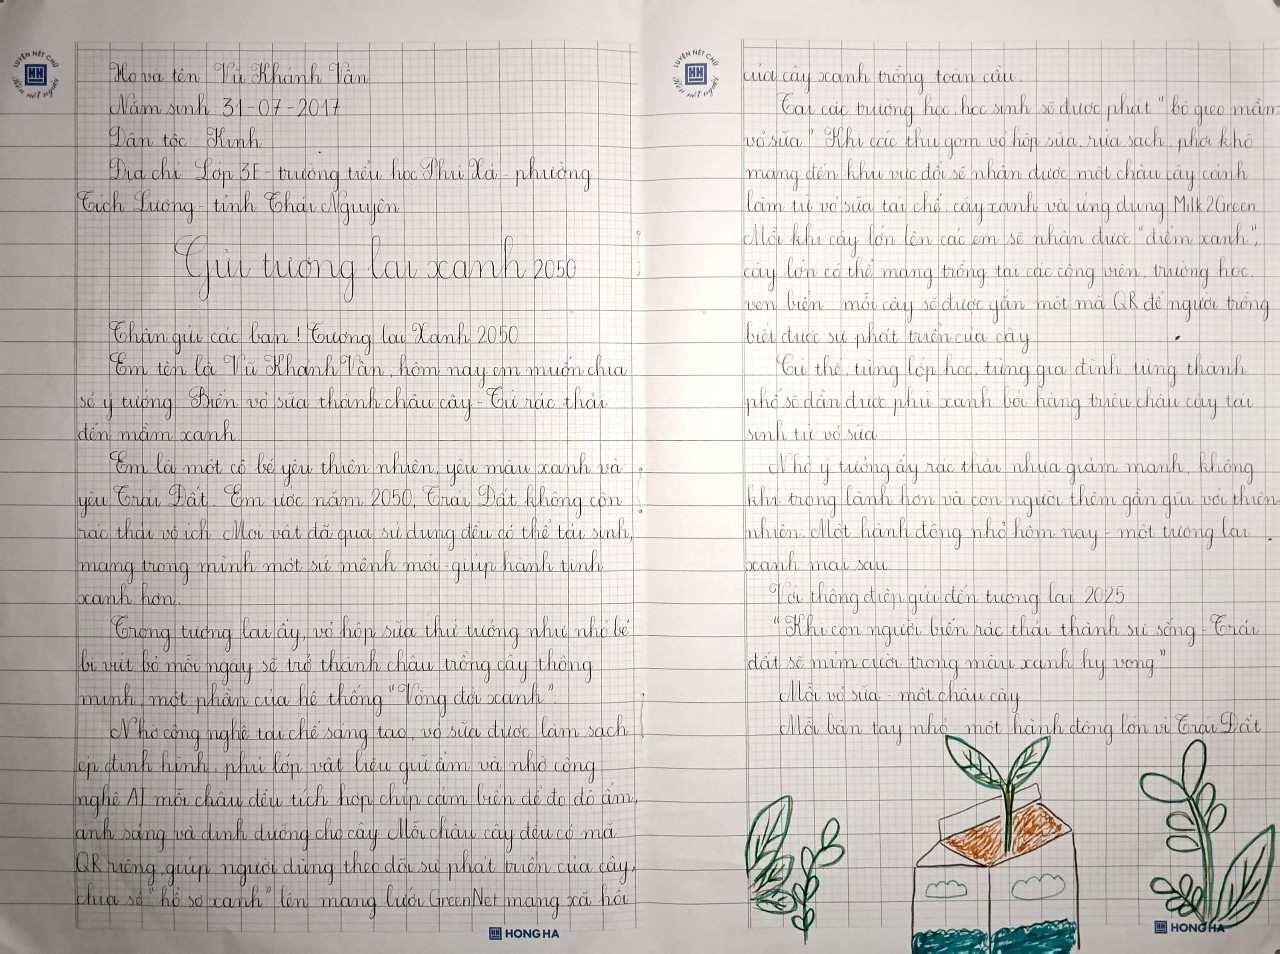 LUYỆN NÉT CHỮ
Rèn nết người
Họ và tên Vũ Khánh Vân
Năm sinh 31-07-2017
Dân tộc Kinh
Địa chỉ Lớp 3E - trường tiểu học Phú Xá - phường
Tích Lương - tỉnh Thái Nguyên
Gửi tương lai xanh 2050
Thân gửi các bạn! Tương lai Xanh 2050
Em tên là Vũ Khánh Vân, hôm nay em muốn chia
sẻ ý tưởng Biến vỏ sữa thành chậu cây - Từ rác thải
đến mầm xanh.
Em là một cô bé yêu thiên nhiên, yêu màu xanh và
yêu Trái Đất. Em ước năm 2050, Trái Đất không còn
rác thải vô ích. Mọi vật đã qua sử dụng đều có thể tái sinh,
mang trong mình một sứ mệnh mới - giúp hành tinh
xanh hơn.
Trong tương lai ấy, vỏ hộp sữa thứ tưởng như nhỏ bé
bị vứt bỏ mỗi ngày sẽ trở thành chậu trồng cây thông
minh, một phần của hệ thống "Vòng đời xanh"
Nhờ công nghệ tái chế sáng tạo, vỏ sữa được làm sạch
ép định hình, phủ lớp vật liệu giữ ẩm và nhờ công
nghệ AI mỗi chậu đều tích hợp chíp cảm biến để đo độ ẩm,
ánh sáng và dinh dưỡng cho cây. Mỗi chậu cây đều có mã
QR riêng, giúp người dùng theo dõi sự phát triển của cây,
chia sẻ "hồ sơ xanh" lên mạng lưới GreenNet mạng xã hội
HONG HA
LUYỆN NÉT CHỮ
Rèn nết người
của cây xanh trồng toàn cầu.
Tại các trường học, học sinh sẽ được phát "bộ gieo mầm
vỏ sữa" Khi các thu gom vỏ hộp sữa, rửa sạch, phơi khô
mang đến khu vực đổi sẽ nhận được một chậu cây cảnh
làm từ vỏ sữa tái chế, cây xanh và ứng dụng Milk2Green.
Mỗi khi cây lớn lên các em sẽ nhận được "điểm xanh",
cây lớn có thể mang trồng tại các công viên, trường học,
ven biển mỗi cây sẽ được gắn một mã QR để người trồng
biết được sự phát triển của cây
Cứ thế, từng lớp học, từng gia đình từng thành
phố sẽ dần được phủ xanh bởi hàng triệu chậu cây tái
sinh từ vỏ sữa
Nhờ ý tưởng ấy rác thải nhựa giảm mạnh, không
khí trong lành hơn và con người thêm gần gũi với thiên
nhiên. Một hành động nhỏ hôm nay - một tương lai
xanh mai sau
Với thông điệp gửi đến tương lai 2025
"Khi con người biến rác thải thành sự sống - Trái
đất sẽ mỉm cười trong màu xanh hy vọng"
Mỗi vỏ sữa - một chậu cây
Mỗi bàn tay nhỏ một hành động lớn vì Trái Đất
HONG HA